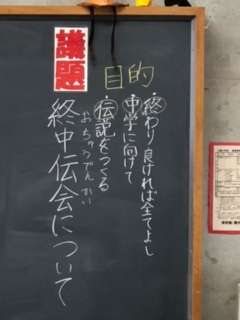 目的
終わり良ければ全てよし
中学に向けて
伝説をつくる
議題
おちゅうでんかい
終中伝会について